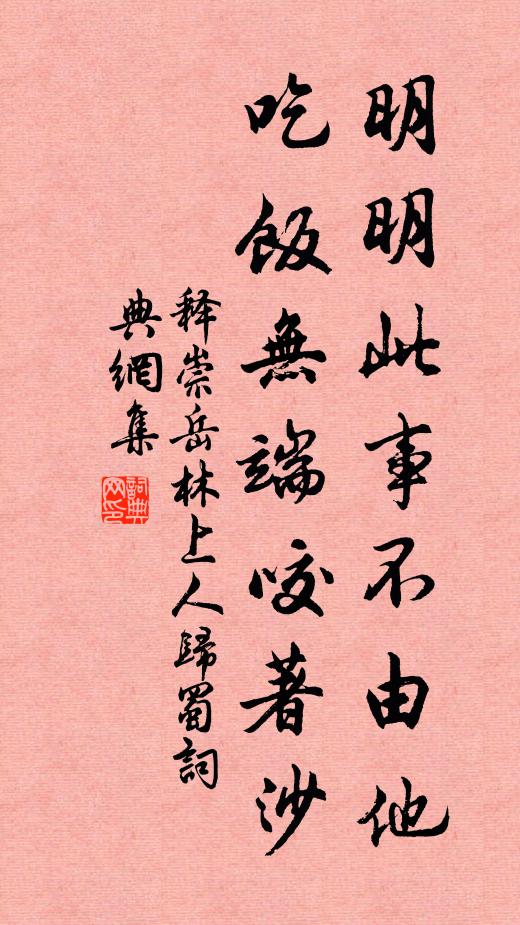 明明此事不由他
吃飯無端咬著沙
释崇岳林上人歸蜀詞
典網集
詞典网印